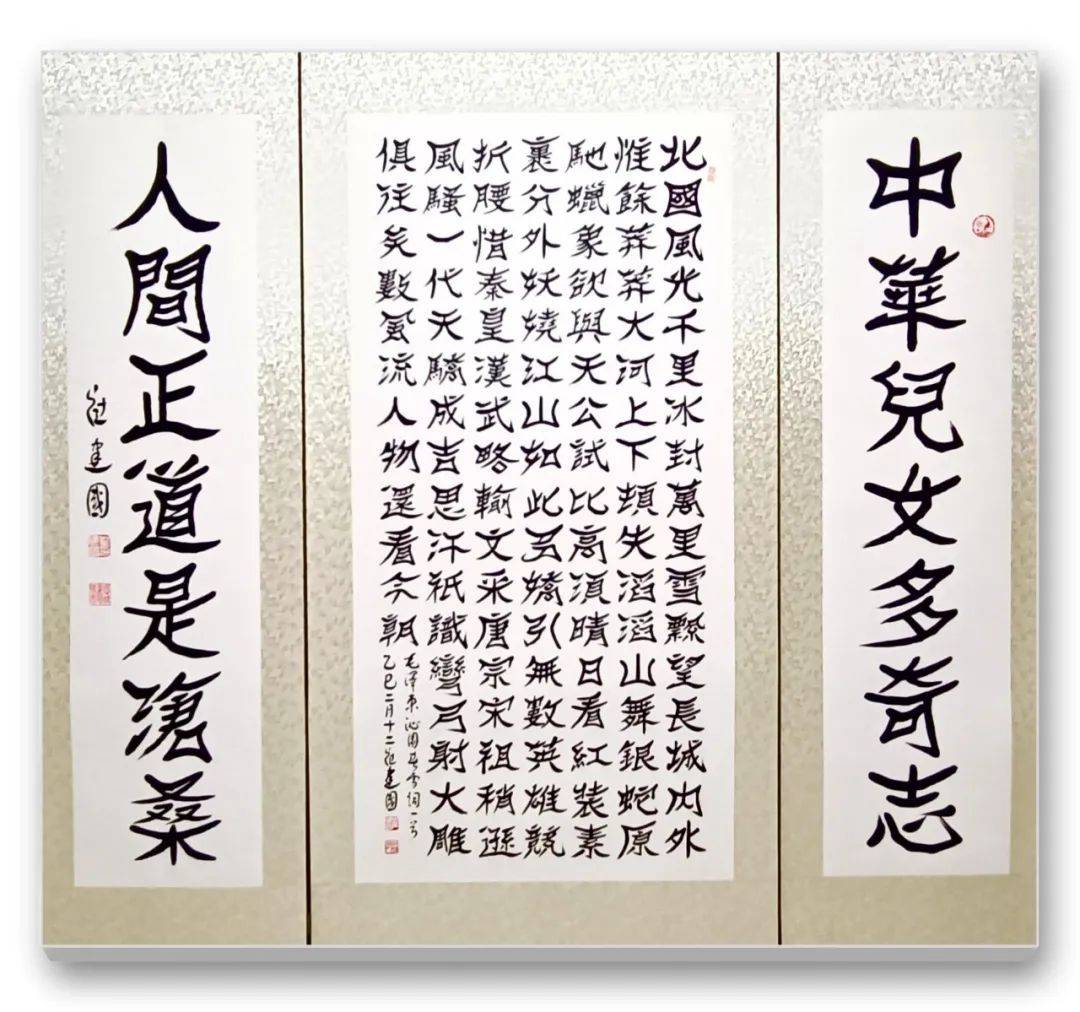 中華兒女多奇志
北國風光千里冰封萬里雪飄望長城内外
惟餘莽莽大河上下頓失滔滔山舞銀蛇原
馳蠟象欲與天公試比高須晴日看紅裝素
裹分外妖嬈江山如此多嬌引無數英雄競
折腰惜秦皇漢武略輸文采唐宗宋祖稍遜
風騷一代天驕成吉思汗祇識彎弓射大雕
俱往矣數風流人物還看今朝
毛澤東沁園春雪詞一首
乙巳二月十二建國
人間正道是滄桑
建國